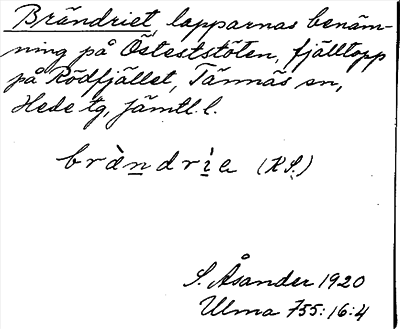 Brändriet, lapparnas benäm-
ning på Östeststöten, fjälltopp
på Rödfjället, Tännäs sn,
Hede tg, Jämtl. l.
bràndrìa (KS.)
S. Åsander 1920
Ulma 755:16:4